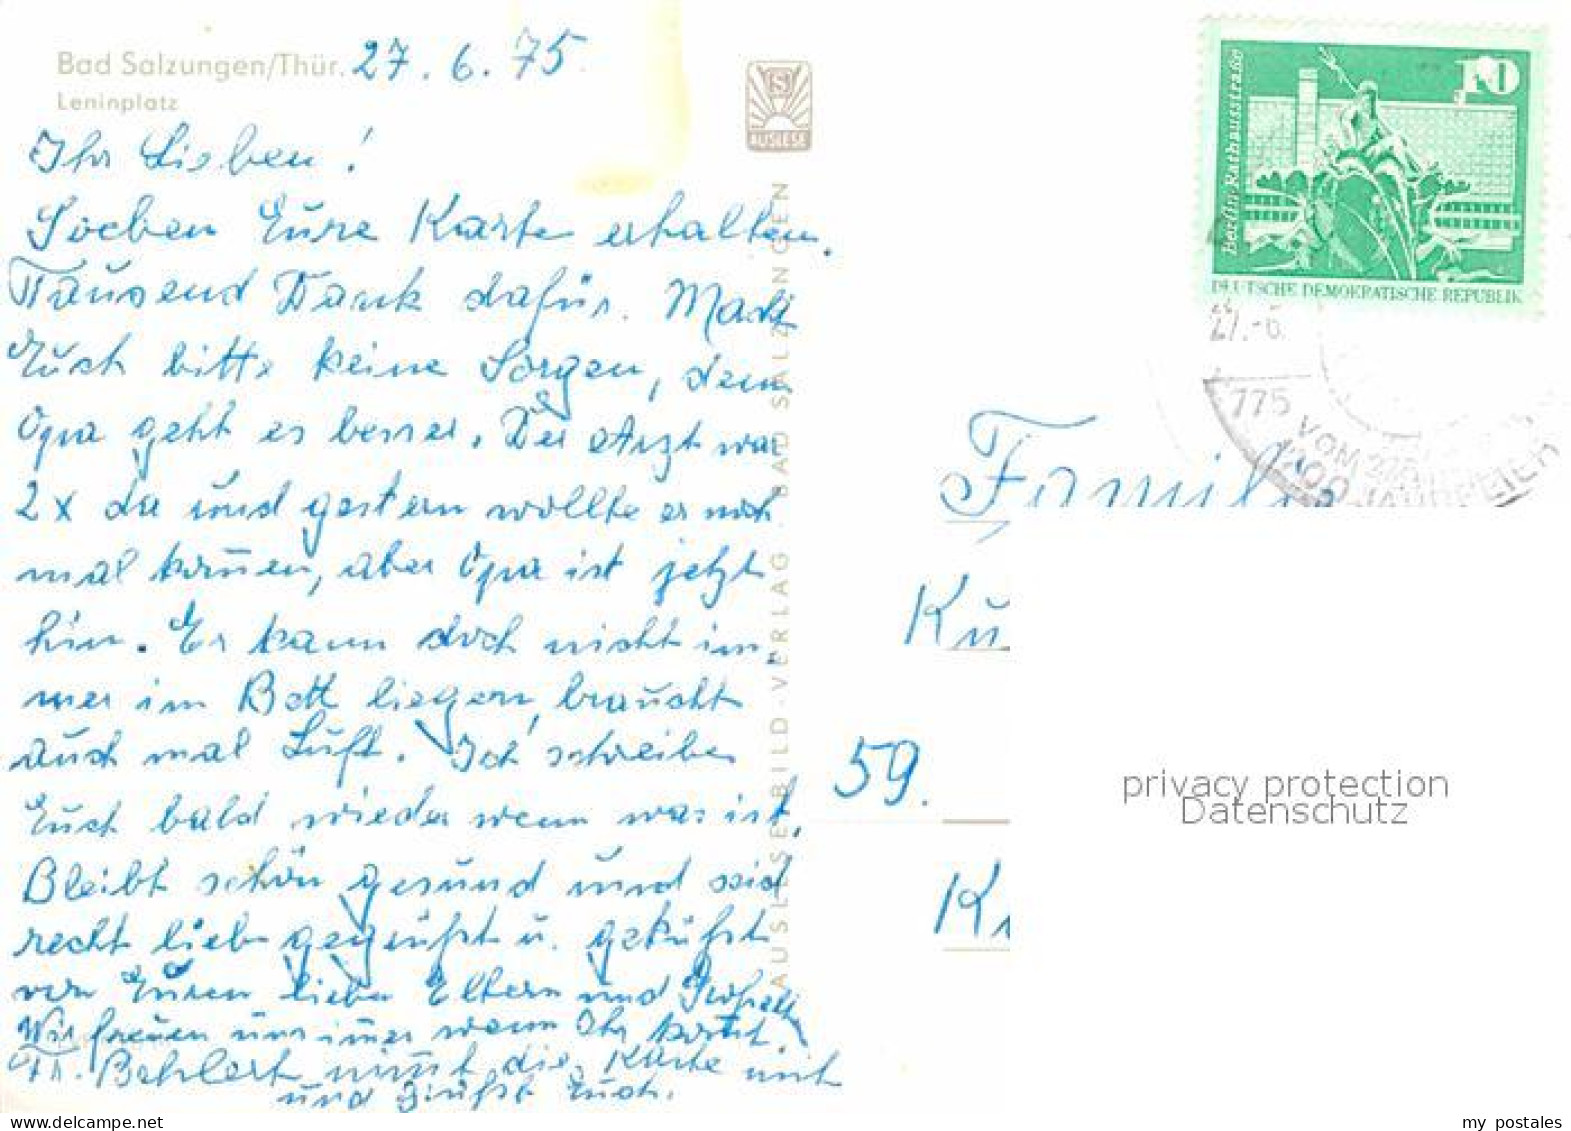 Bad Salzungen/Thür. 27.6.75
Leninplatz
AUSLESE
Ihr Lieben!
Soeben Eure Karte erhalten.
Tausend Dank dafür. Macht
Euch bitte keine Sorgen, denn
Opa geht es besser. Der Arzt war
2x da und gestern wollte er noch
mal kom̄en, aber Opa ist jetzt
hin. Er kann doch nicht im-
mer im Bett liegen, braucht
auch mal Luft. Ich schreibe
Euch bald wieder wenn was ist.
Bleibt schön gesund und seid
recht lieb gegrüßt u. geküßt
von Euren lieben Eltern und Großelt.
Wir freuen uns im̄er wenn Ihr kom̄t.
Fr. Behlert nim̄t die Karte mit
und grüßt Euch.
AUSLESE-BILD-VERLAG. BAD SALZUNGEN
10
Berlin, Rathausstraße
DEUTSCHE DEMOKRATISCHE REPUBLIK
27.-6.
775
VOM
JAHRFEIER
Familie
Ku
59.
K
privacy protection
Datenschutz
www.delcampe.net
my_postales